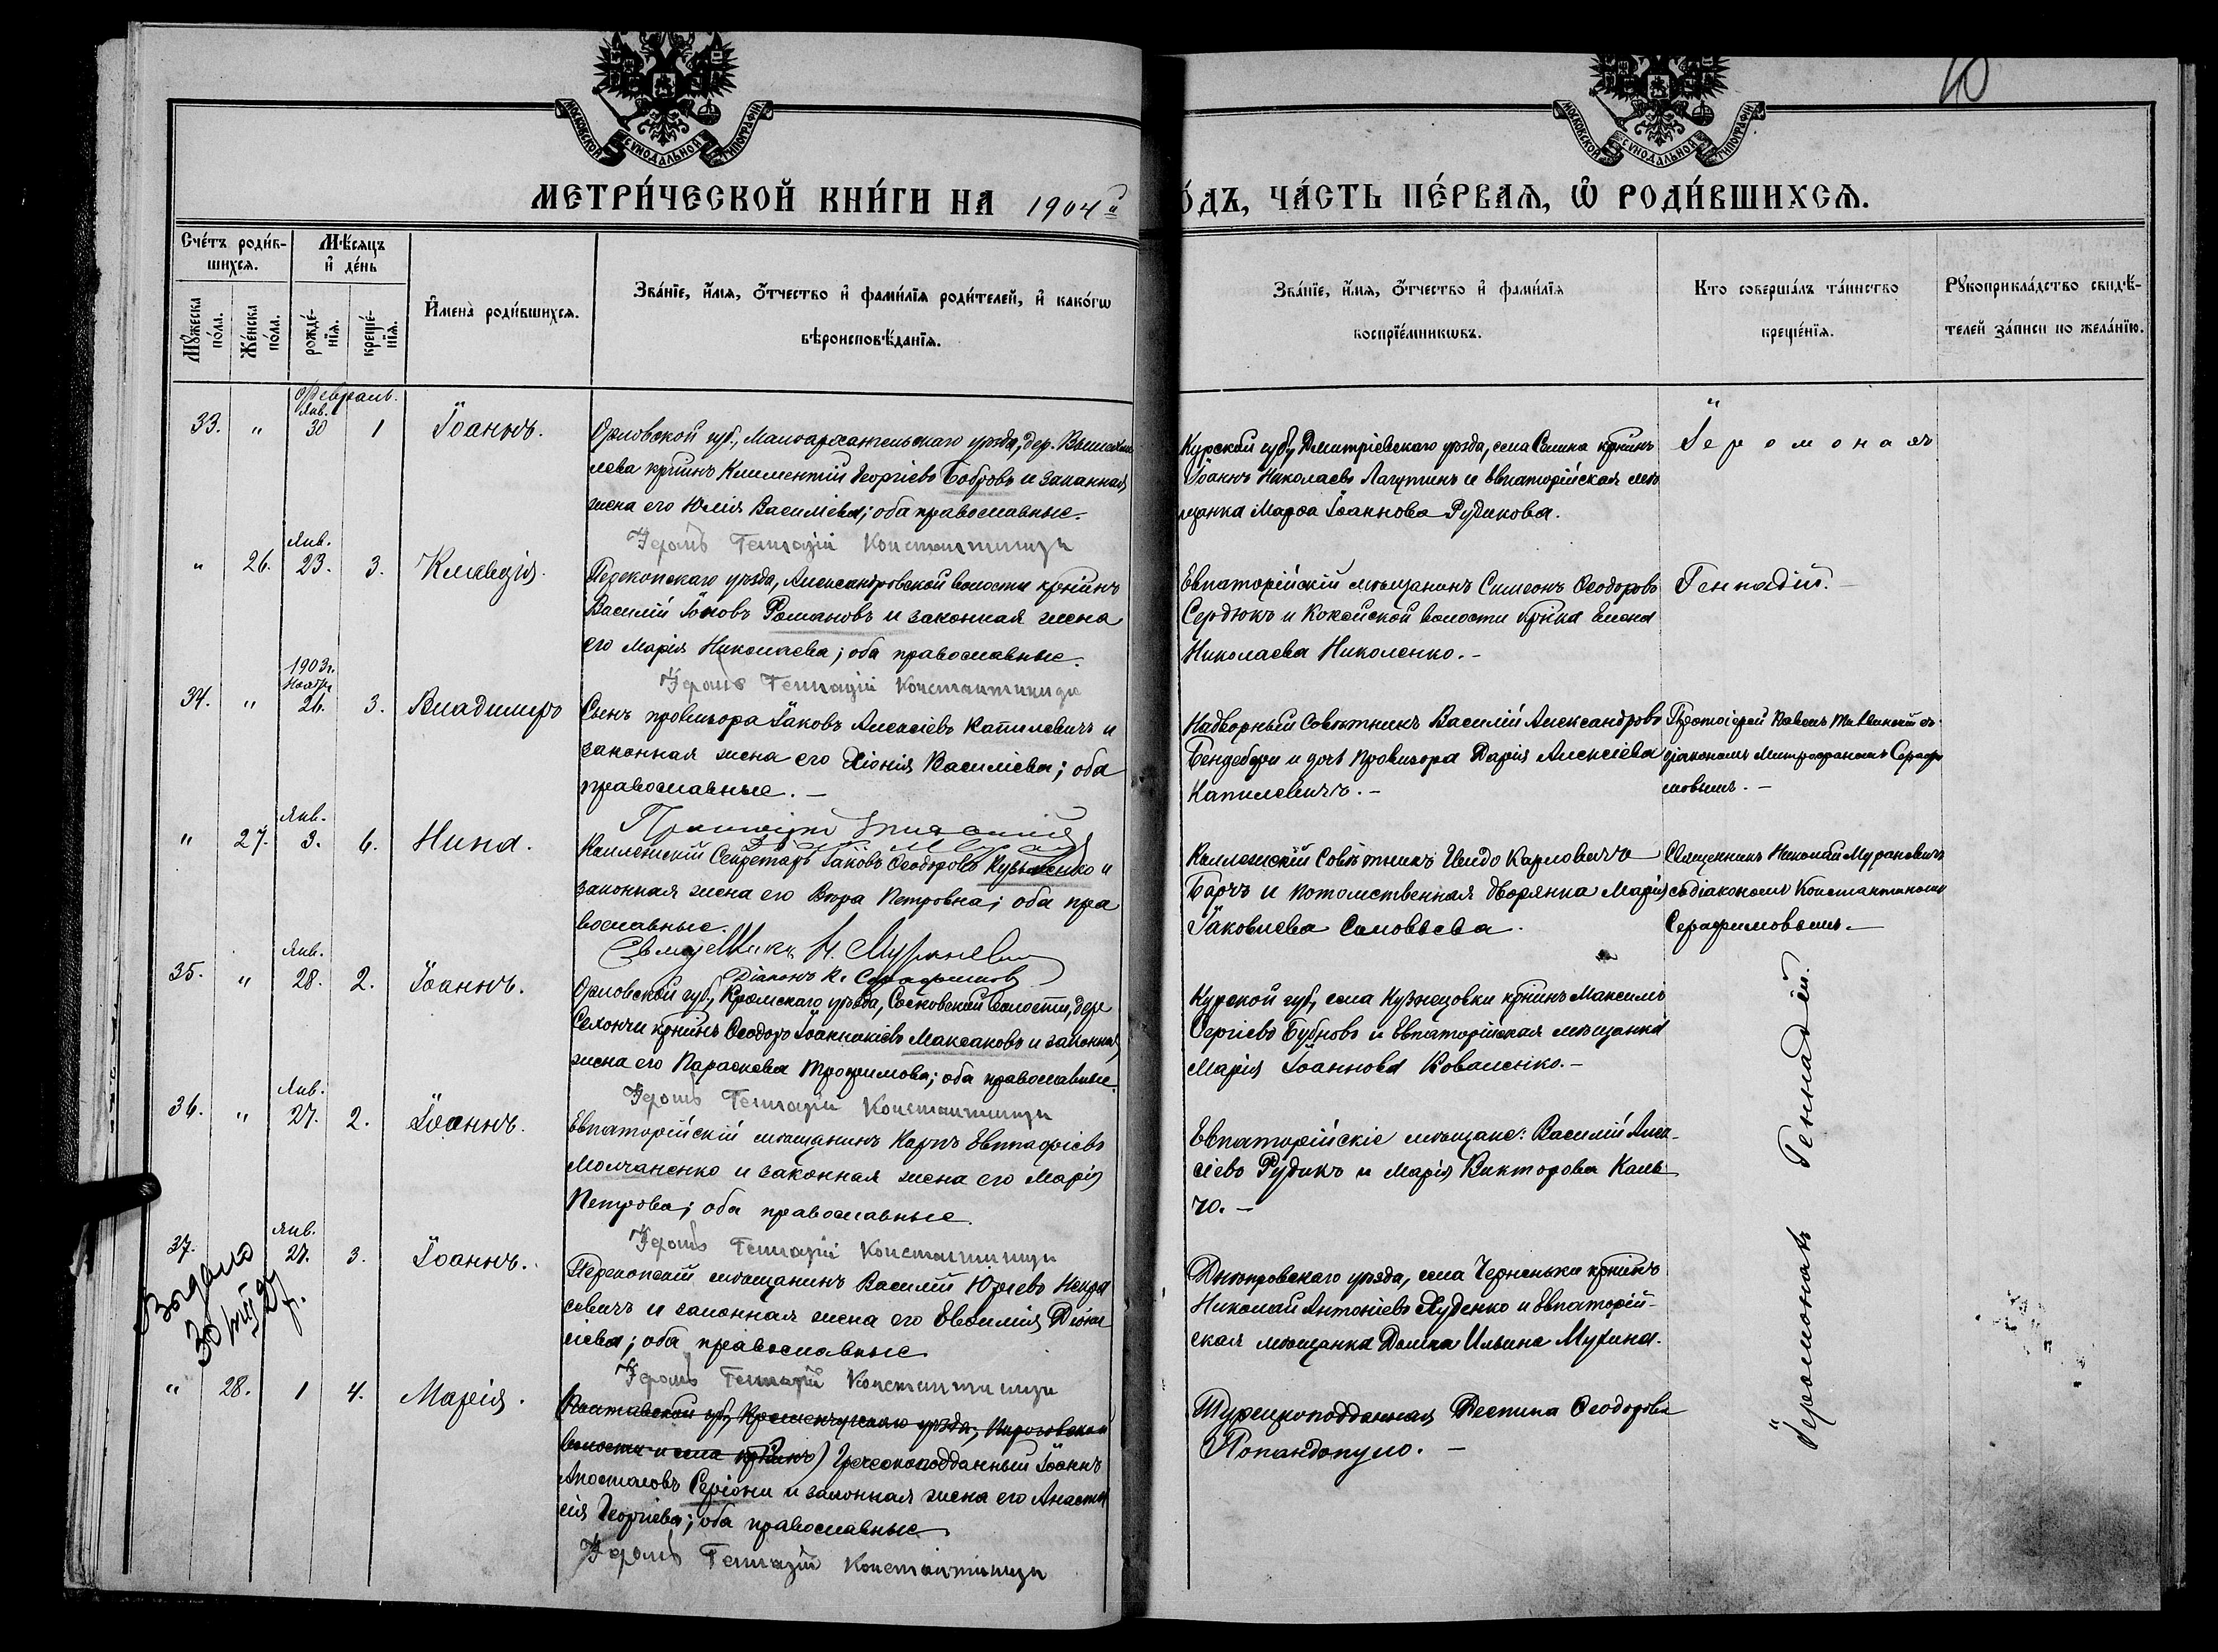 10
МОСКОВСКОЙ СѴНОДАЛЬНОЙ ТИПОГРАФІИ
МОСКОВСКОЙ СѴНОДАЛЬНОЙ ТИПОГРАФІИ
МЕТРИ́ЧЕСКОЙ КНИ́ГИ НА 1904й
О́ДЪ, ЧА́СТЬ ПЕ́РВАѦ, Ѡ҆ РОДИ́ВШИХСѦ.
Сче́тъ роди́в-
шихсѧ.
Мѣ́сѧцъ
и҆ де́нь
Мꙋ́жеска
по́ла.
Же́нска
по́ла.
рожде́-
нїѧ.
креще́-
нїѧ.
И҆мена̀ роди́вшихсѧ.
Зва́нїе, и҆́мѧ, ѻ҆́тчество и҆ фами́лїѧ роди́телей, и҆ како́гѡ
вѣроисповѣ́данїѧ.
Зва́нїе, и҆́мѧ, ѻ҆́тчество и҆ фами́лїѧ
воспрїе́мникѡвъ.
Кто соверша́лъ та́инство
креще́нїѧ.
Рꙋкоприкла́дство свидѣ́-
телей за́писи по жела́нїю.
Февраль.
33. " Янв. 30 1 Іоаннъ.
Орловской губ., Малоархангельскаго уѣзда, дер.
крнинъ Климентій Георгіевъ Бобровъ и законная
жена его Юлія Василіева; оба православные.
Іеромъ Геннадій Константиниди
Курской губ., Дмитріевскаго уѣзда, села крнинъ
Іоаннъ Николаевъ Лагутинъ и Евпаторійская мѣ
щанка Марѳа Іоаннова Рудикова.
Іеромонахъ
" 26. Янв. 23. 3. Клавдія.
Перекопскаго уѣзда, Александровской волости крнинъ
Василій Іоновъ Романовъ и законная жена
его Марія Николаева; оба православные.
Іеромъ Геннадій Константиниди
Евпаторійскій мѣщанинъ Симеонъ Ѳеодоровъ
Сердюкъ и Кокейской волости крнка Елена
Николаева Николенко.-
Геннадій.-
34. " 1903г. Ноября 26. 3. Владиміръ
Сынъ провизора Іаковъ Алексіевъ Капилевичъ и
законная жена его Хіонія Василіева; оба
православные.-
Надворный Совѣтникъ Василій Александровъ
Бендебери и дочь провизора Дарія Алексіева
Капилевичъ.-
Протоіерей Павелъ съ
діакономъ Митрофаномъ Серафи
мовымъ.-
" 27. Янв. 3. 6. Нина.
Коллежскій Секретарь Іаковъ Ѳеодоровъ Кузьменко и
законная жена его Вѣра Петровна; оба пра
вославные.
Священникъ Н. Мурановичъ
Діаконъ К. Серафимовъ
Коллежскій Совѣтникъ Гвидо Карловичъ
Барчъ и потомственная дворянка Марія
Іаковлева Соловьева.
Священникъ Николай Мурановичъ
съ діакономъ Константиномъ
Серафимовымъ.-
35. " Янв. 28. 2. Іоаннъ.
Орловской губ., Кромскаго уѣзда, Сосковской волости, дер
крнинъ Ѳеодоръ Іоанникіевъ Максаковъ и законная
жена его Параскева Трофимова; оба православные.
Іеромъ Геннадій Константиниди
Курской губ., села Кузнецовки крнинъ Максимъ
Сергіевъ Бубновъ и Евпаторійская мѣщанка
Марія Іоаннова Коваленко.-
Іеромонахъ Геннадій.
36. " Янв. 27. 2. Іоаннъ.
Евпаторійскій мѣщанинъ Карпъ Евпафріевъ
Молчаненко и законная жена его Марія
Петрова; оба православные.
Іеромъ Геннадій Константиниди
Евпаторійскіе мѣщане: Василій Алек-
сіевъ Рудикъ и Марія Викторова Каль
чо.-
37. Янв. 27. 3. Іоаннъ.
Выдано
30/VII 27 г.
Перекопскій мѣщанинъ Василій Юріевъ Некра
севичъ и законная жена его Евѳимія Діони
сіева; оба православные.
Іеромъ Геннадій Константиниди
Днѣпровскаго уѣзда, села Чернѣньки крнинъ
Николай Антоніевъ Худенко и Евпаторій-
ская мѣщанка Домна Ильина Мухина.
" 28. 1 4. Марія.
Полтавской губ., Кременчугскаго уѣзда,
волости и села крнинъ) Греческоподданный Іоаннъ
Апостоловъ Серіони и законная жена его Анаста
сія Георгіева; оба православные.
Іеромъ Геннадій Константиниди
Турецкоподданная Деспина Ѳеодорова
Попандопуло.-